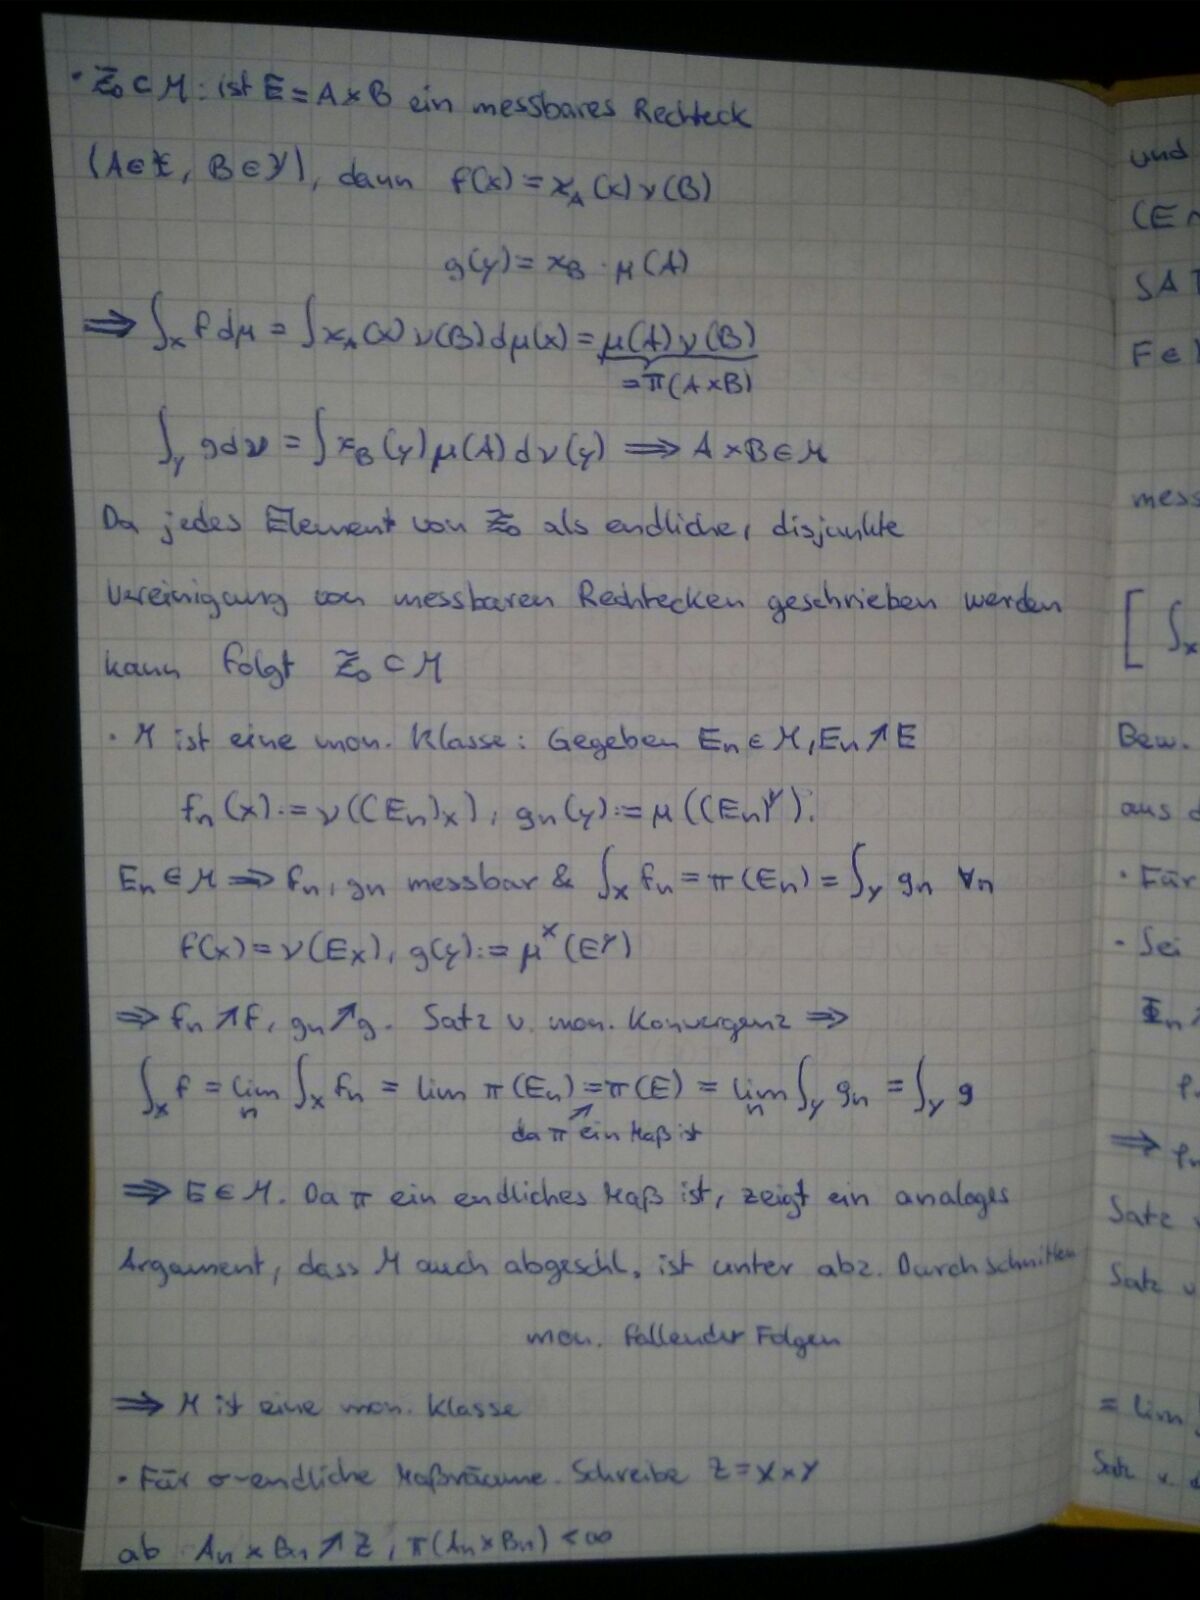 · Z̃₀ ⊂ M: ist E = A × B ein messbares Rechteck
(A ∈ X, B ∈ Y), dann f(x) = χ_A(x) ν(B)
g(y) = χ_B · μ(A)
⇒ ∫_X f dμ = ∫ χ_A(x) ν(B) dμ(x) = μ(A) ν(B)
= π(A×B)
∫_Y g dν = ∫ χ_B(y) μ(A) dν(y) ⇒ A × B ∈ M
Da jedes Element von Z̃₀ als endliche, disjunkte
Vereinigung von messbaren Rechtecken geschrieben werden
kann folgt Z̃₀ ⊂ M
· M ist eine mon. Klasse: Gegeben E_n ∈ M, E_n ↗ E
f_n(x) := ν((E_n)_x), g_n(y) := μ((E_n)^y).
E_n ∈ M ⇒ f_n, g_n messbar & ∫_X f_n = π(E_n) = ∫_Y g_n ∀n
f(x) = ν(E_x), g(y) := μ^x(E^y)
⇒ f_n ↗ f, g_n ↗ g. Satz v. mon. Konvergenz ⇒
∫_X f = lim_n ∫_X f_n = lim π(E_n) = π(E) = lim_n ∫_Y g_n = ∫_Y g
da π ein Maß ist
⇒ E ∈ M. Da π ein endliches Maß ist, zeigt ein analoges
Argument, dass M auch abgeschl. ist unter abz. Durchschnitten
mon. fallender Folgen
⇒ M ist eine mon. Klasse
· Für σ-endliche Maßräume. Schreibe Z = X × Y
ab A_n × B_n ↗ Z, π(A_n × B_n) < ∞
und
(E
SAT
F ∈
mess
[ ∫_X
Bew.
aus
· Für
· Sei
Φ_n
⇒
Satz
Satz v
= lim
Satz v.